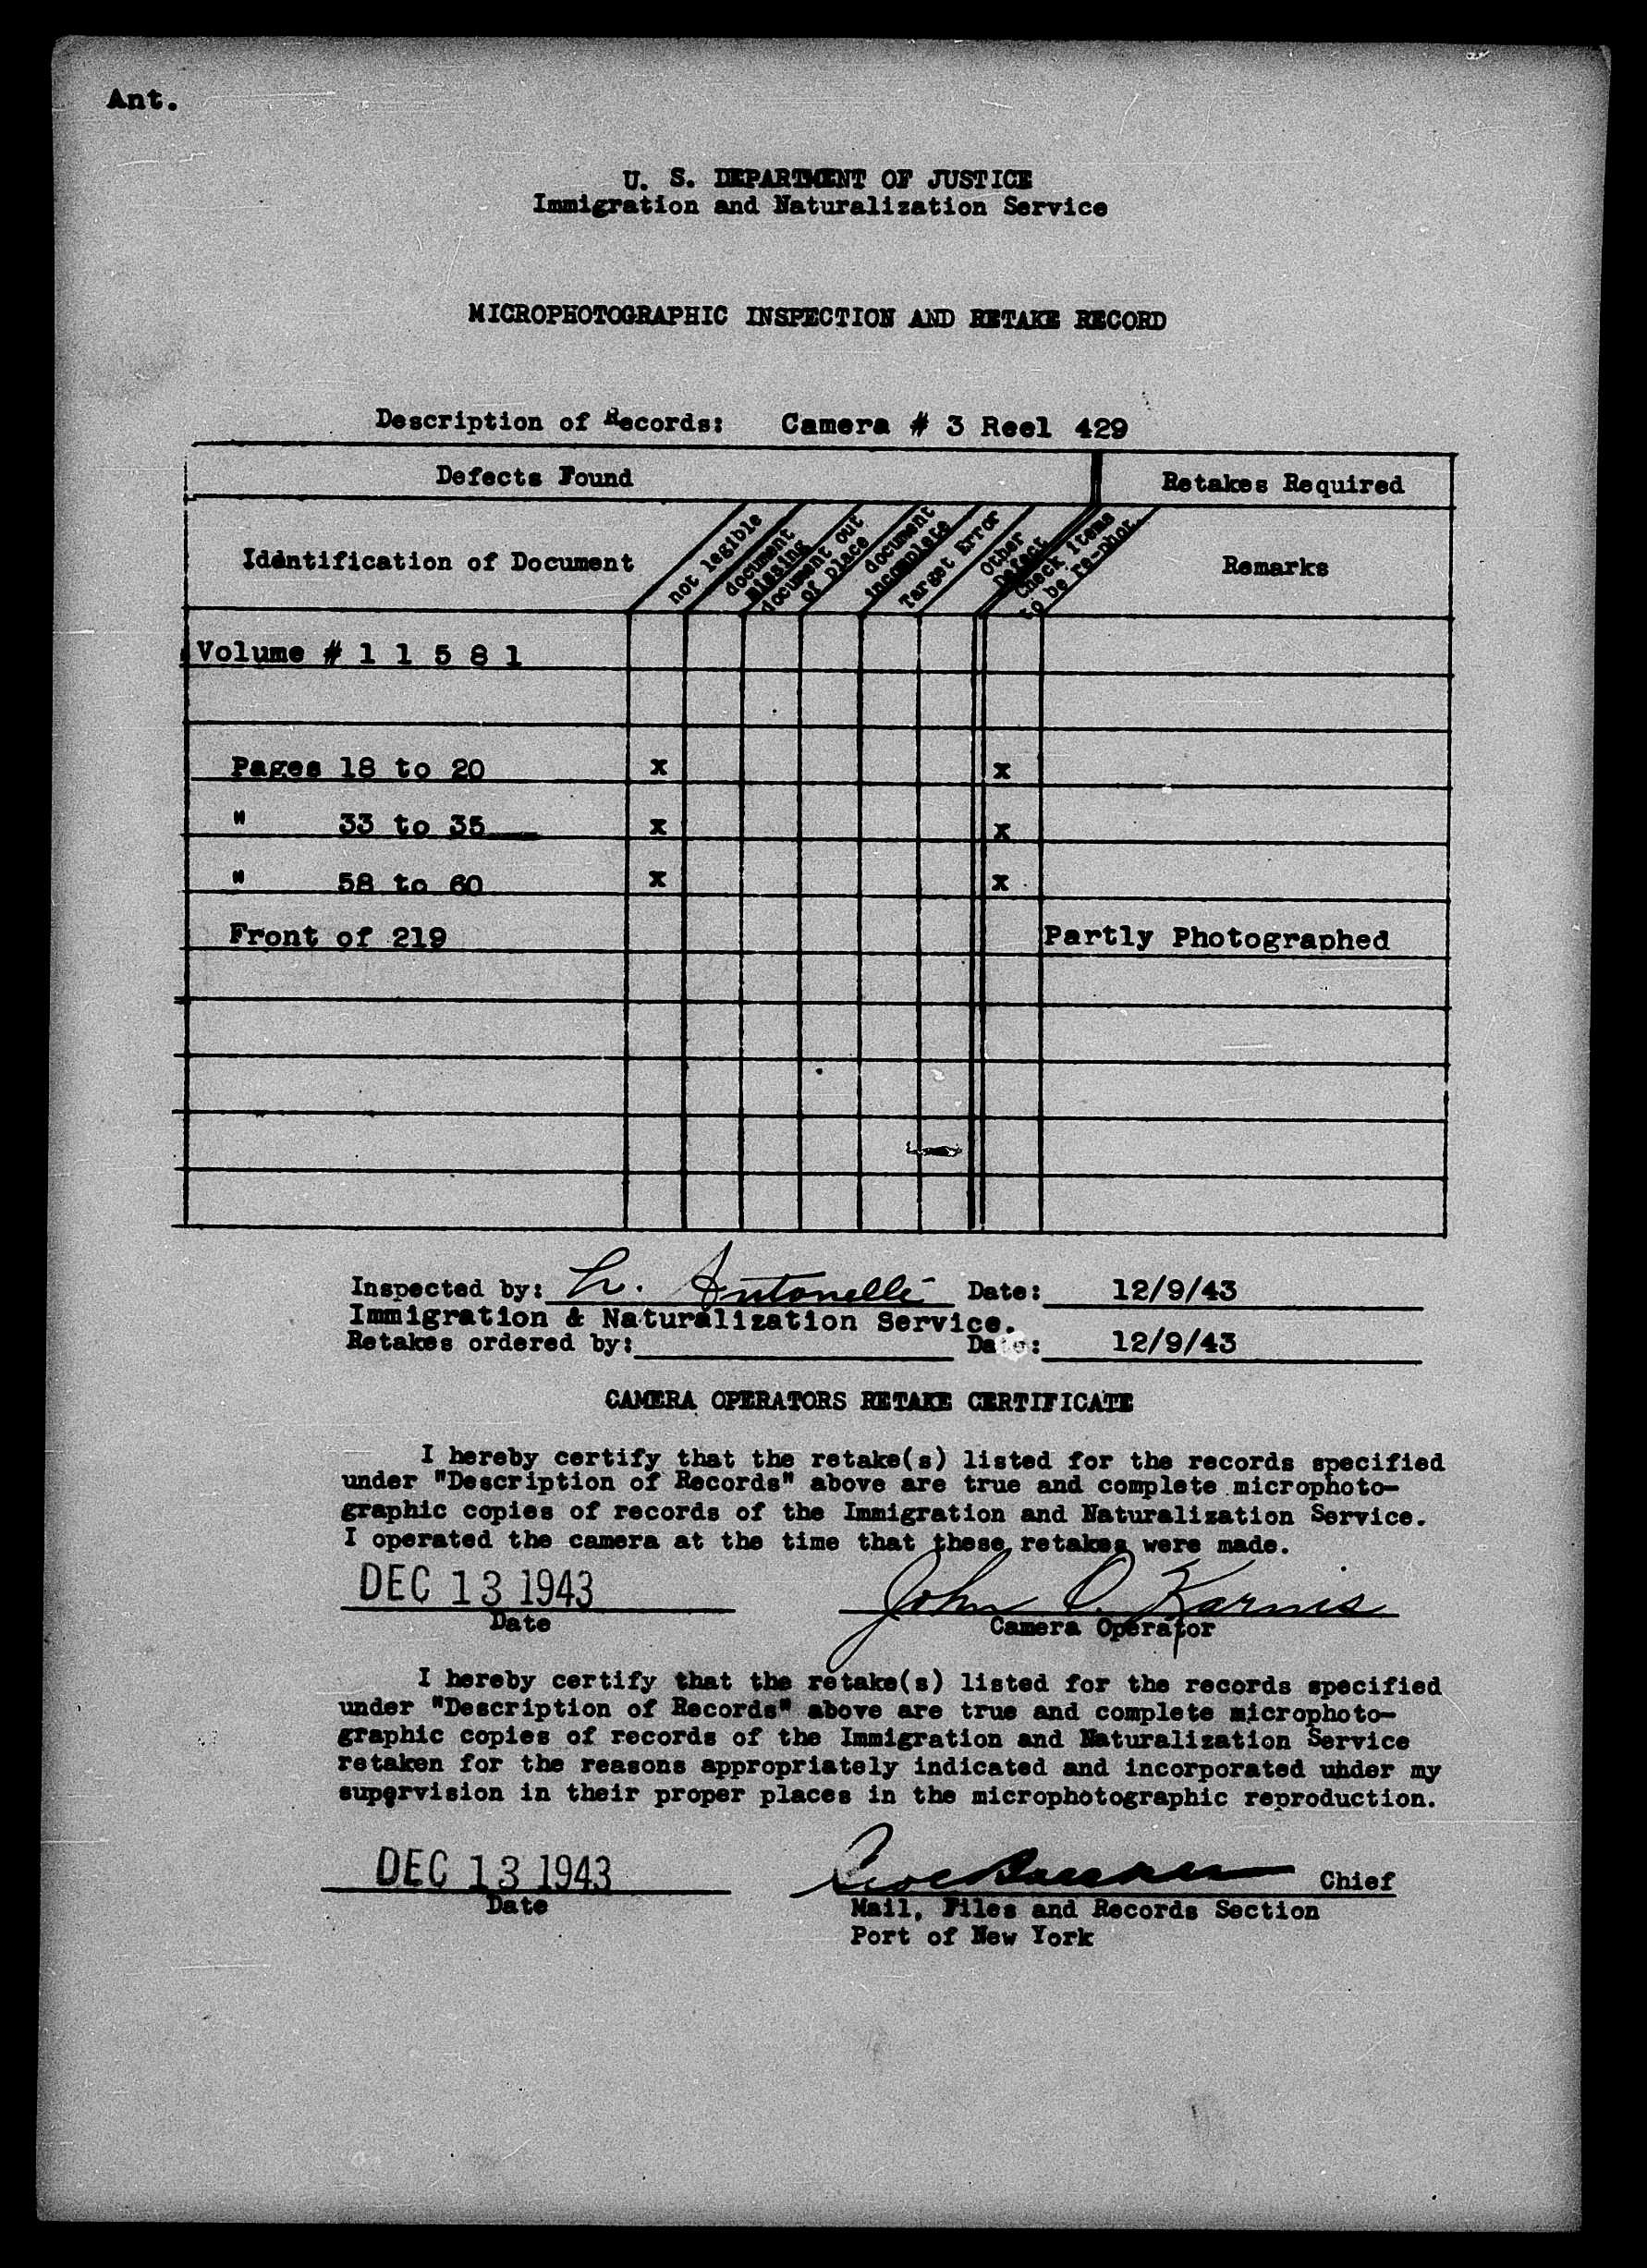 Ant.
U. S. DEPARTMENT OF JUSTICE
Immigration and Naturalization Service
MICROPHOTOGRAPHIC INSPECTION AND RETAKE RECORD
Description of Records: Camera # 3 Reel 429
Defects Found
Retakes Required
Identification of Document
not legible
document
missing
document out
of place
document
incomplete
Target Error
Other
Defect
Check items
to be re-phot.
Remarks
Volume # 1 1 5 8 1
Pages 18 to 20 x x
" 33 to 35 x x
" 58 to 60 x x
Front of 219 Partly Photographed
Inspected by: L. Antonelli Date: 12/9/43
Immigration & Naturalization Service.
Retakes ordered by: Date: 12/9/43
CAMERA OPERATORS RETAKE CERTIFICATE
I hereby certify that the retake(s) listed for the records specified
under "Description of Records" above are true and complete microphoto-
graphic copies of records of the Immigration and Naturalization Service.
I operated the camera at the time that these retakes were made.
DEC 13 1943 John O. Karnis
Date Camera Operator
I hereby certify that the retake(s) listed for the records specified
under "Description of Records" above are true and complete microphoto-
graphic copies of records of the Immigration and Naturalization Service
retaken for the reasons appropriately indicated and incorporated under my
supervision in their proper places in the microphotographic reproduction.
DEC 13 1943 Chief
Date Mail, Files and Records Section
Port of New York